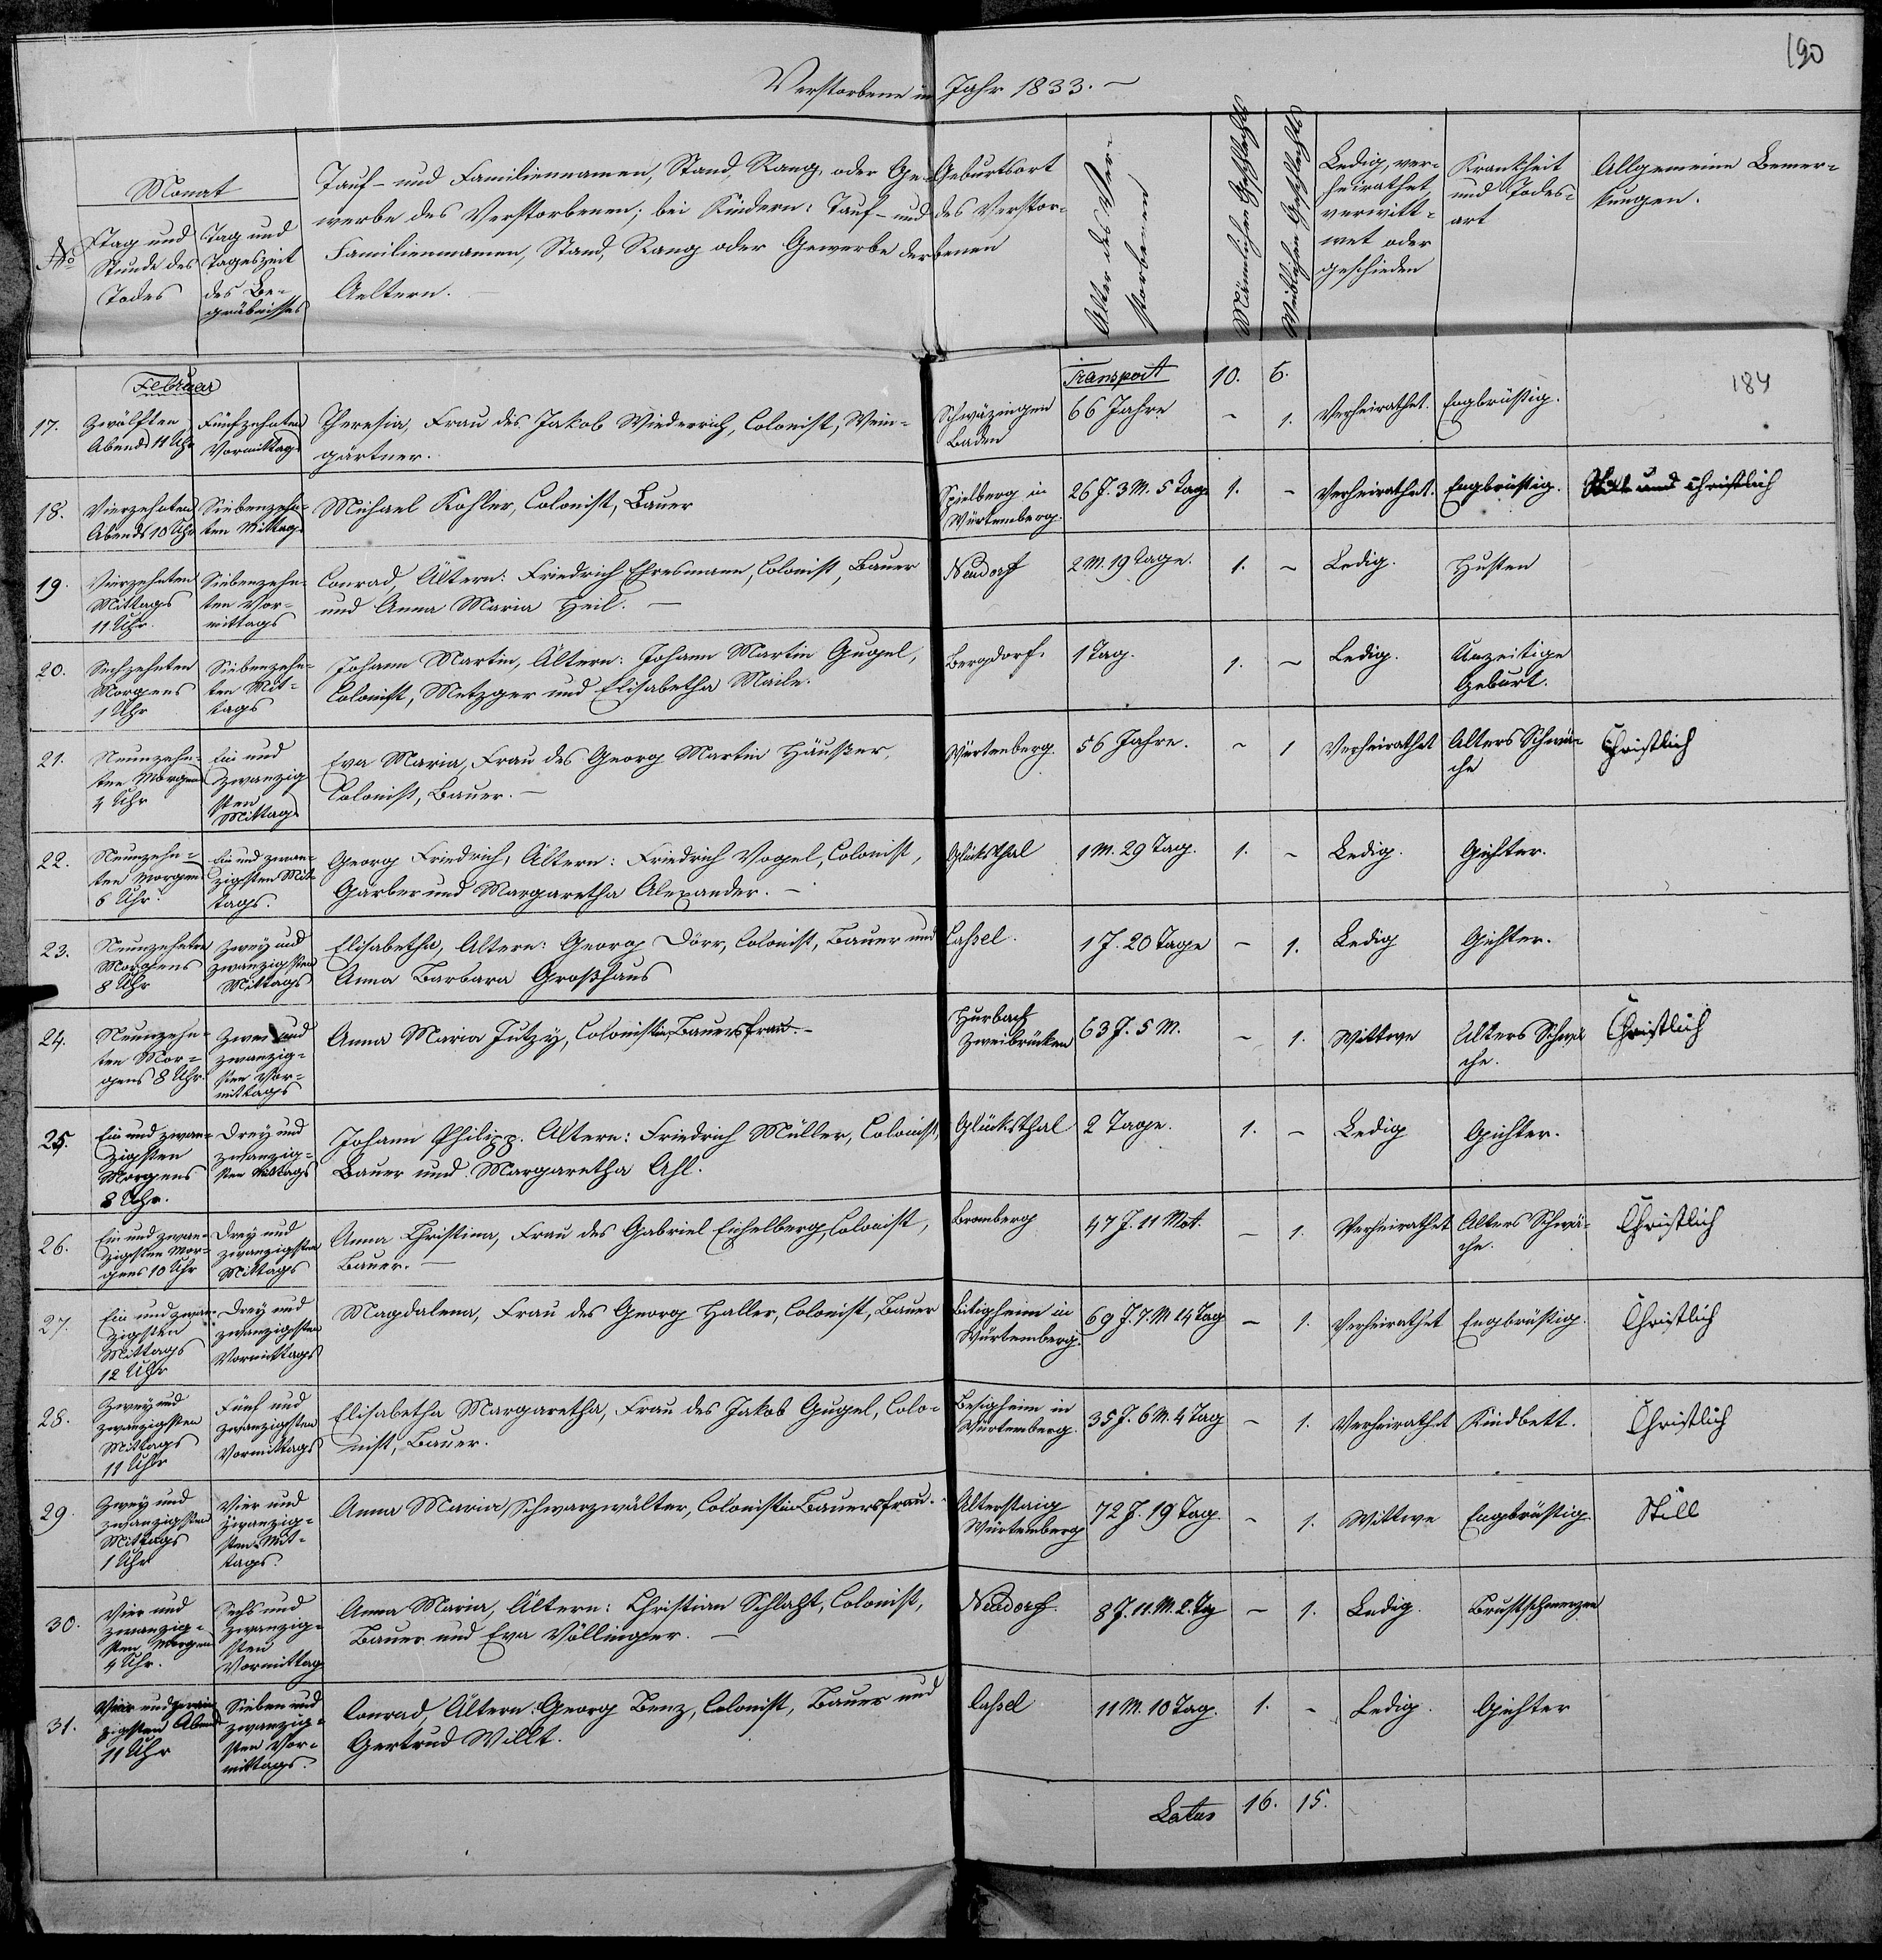 190
Verstorbene im Jahr 1833.
Monat
No
Tag und
Stunde des
Todes
Tag und
Tageszeit
des Be-
gräbnisses
Tauf- und Familiennamen, Stand, Rang, oder Ge-
werbe des Verstorbenen; bei Kindern: Tauf- und
Familiennamen, Stand, Rang oder Gewerbe der
Aeltern.
Geburtsort
des Verstor-
benen
Alter des Ver-
storbenen
Männlichen Geschlechts
Weiblichen Geschlechts
Ledig, ver-
heirathet,
verwitt-
wet oder
geschieden
Krankheit
und Todes-
art
Allgemeine Bemer-
kungen.
Februar
Transport 10. 6.
184
17.
Zwölften
Abends 11 Uhr
Fünfzehnten
Vormittags
Theresia, Frau des Jakob Wiederrich, Colonist, Wein-
gärtner.
Schwäzingen
Baden
66 Jahre - 1. Verheirathet. Engbrüstig.
18.
Vierzehnten
Abends 10 Uhr
Siebenzehn-
ten Mittags
Michael Kohler, Colonist, Bauer
Spielberg in
Würtemberg.
26 J. 3 M. 5 Tage 1. - Verheirathet. Engbrüstig. Still und christlich
19.
Vierzehnten
Mittags
11 Uhr.
Siebenzehn-
ten Vor-
mittags
Conrad, Ältern: Friedrich Ehresmann, Colonist, Bauer
und Anna Maria Heil.
Neudorf 2 M. 19 Tage. 1. - Ledig. Husten
20.
Sechzehnten
Morgens
1 Uhr
Siebenzehn-
ten Mit-
tags
Johann Martin, Ältern: Johann Martin Gugel,
Colonist, Metzger und Elisabetha Maile.
Bergdorf. 1 Tag. 1. - Ledig.
Unzeitige
Geburt.
21.
Neunzehn-
ten Morgens
4 Uhr
Ein und
zwanzig
sten
Mittags
Eva Maria, Frau des Georg Martin Häußer,
Colonist, Bauer.
Würtemberg. 56 Jahre. - 1 Verheirathet
Alters Schwä-
che
Christlich
22.
Neunzehn-
ten Morgen
6 Uhr.
Ein und zwan-
zigsten Mit-
tags.
Georg Friedrich, Ältern: Friedrich Vogel, Colonist,
Gärber und Margaretha Alexander.
Glücksthal 1 M. 29 Tag. 1. - Ledig. Gichter.
23.
Neunzehnten
Morgens
8 Uhr
Zwey und
zwanzigsten
Mittags
Elisabetha, Ältern: Georg Dörr, Colonist, Bauer und
Anna Barbara Großhans
Cassel. 1 J. 20 Tage - 1. Ledig Gichter.
24.
Neunzehn-
ten Mor-
gens 8 Uhr.
Zwei und
zwanzig-
sten Vor-
mittags
Anna Maria Jutzy, Colonistin, Bauersfrau.
Hurbach
Zweibrücken
63 J. 5 M. - 1. Wittwe
Alters Schwä
che.
Christlich
25.
Ein und zwan-
zigsten
Morgens
8 Uhr.
Drey und
zwanzig-
sten Mittags
Johann Philipp. Ältern: Friedrich Müller, Colonist,
Bauer und Margaretha Ahl.
Glücksthal 2 Tage. 1. - Ledig Gichter.
26.
Ein und zwan-
zigsten Mor-
gens 10 Uhr
Drey und
zwanzigsten
Mittags
Anna Christina, Frau des Gabriel Eichelberg, Colonist,
Bauer.
Bromberg 47 J. 11 Mot. - 1. Verheirathet
Alters Schwä-
che.
Christlich
27.
Ein und zwan-
zigsten
Mittags
12 Uhr
Drey und
zwanzigsten
Vormittags
Magdalena, Frau des Georg Haller, Colonist, Bauer
Bitigheim in
Würtemberg.
69 J. 7. M 14 Tag - 1. Verheirathet Engbrüstig. Christlich
28.
Zwey und
zwanzigsten
Mittags
11 Uhr
Fünf und
zwanzigsten
Vormittags
Elisabetha Margaretha, Frau des Jakob Gugel, Colo-
nist, Bauer.
Besigheim in
Würtemberg.
35 J. 6 M. 4 Tag - 1. Verheirathet Kindbett. Christlich
29.
Zwey und
zwanzigsten
Mittags
1 Uhr
Vier und
zwanzig-
sten Mit-
tags.
Anna Maria Schwarzwälter, Colonistin Bauersfrau.
Alterstaig
Würtemberg
72 J. 19 Tag - 1. Wittwe Engbrüstig. Still
30.
Vier und
zwanzig-
sten Morgens
4 Uhr.
Sechs und
zwanzig-
sten
Vormittag
Anna Maria, Ältern: Christian Schlaht, Colonist,
Bauer und Eva Völlinger.
Neudorf. 8 J. 11. M. 2. Tg - 1. Ledig. Brustschmerzen
31.
Vier und zwan
zigsten Abend
11 Uhr
Sieben und
zwanzig-
sten Vor-
mittags.
Conrad, Ältern: Georg Benz, Colonist, Bauer und
Gertrud Willt.
Cassel 11 M. 10 Tag. 1. - Ledig. Gichter
Latus 16. 15.